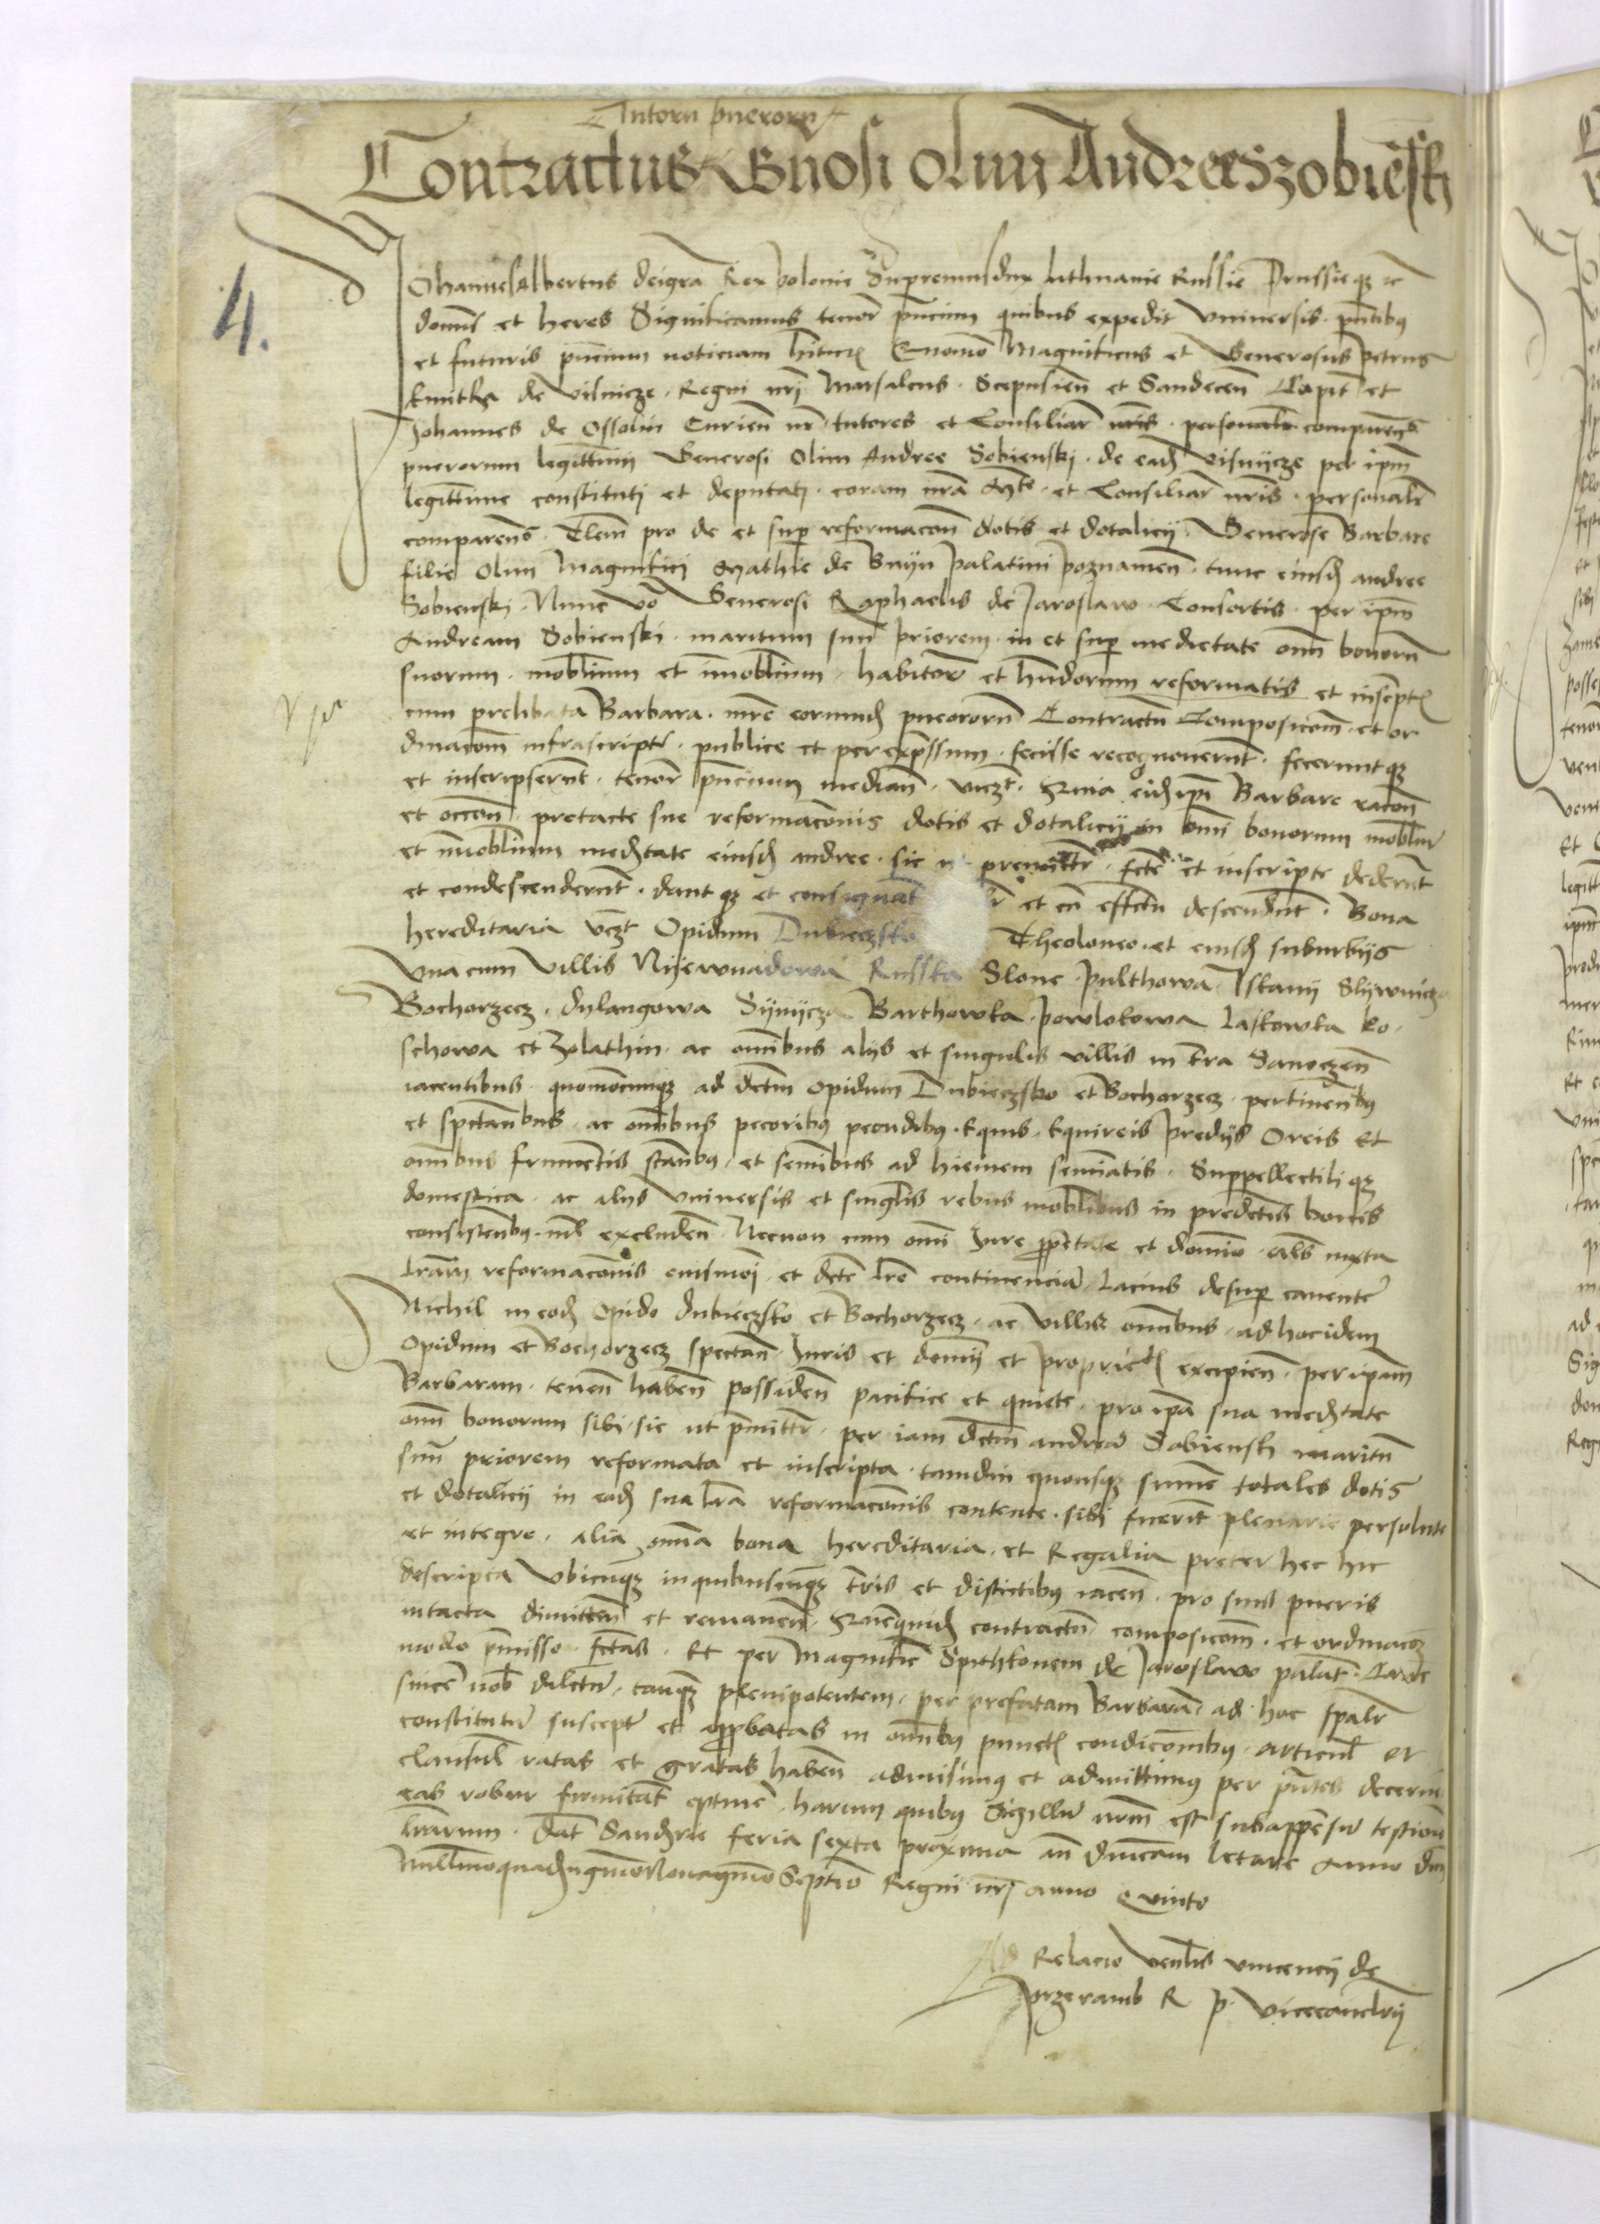 Tutorum puerorum
Contractus Gn̄osi olim Andree Szobieński
4.
Johannes Albertus dei gr̄a Rex polonie Supremus dux lithuanie Russie Prussieqȝ ꝛc
domin9 et heres Significamus tenor̄ pn̄cium quibus expedit Vniversis pn̄tibus
et futuris pn̄cium noticiam hitur̄ Quomō Magnificus et Generosus petrus
kmitha de Visnicze Regni nr̄i Marsalcus Scepusien̄ et Sandecen̄ Capit̄ et
Johannes de Ossolin Curien̄ nr̄ tutores et Consiliar̄ personalr̄ comparens
puerorum legittimi Generosi Olim Andree Sobienski de ead̄ visnijcze per ipm̄
legittime constituti et deputati coram nr̄a Mt̄e et Consiliar̄ nr̄is personalr̄
comparens̄ pro de et sup̱ reformacōn̄ dotis et dotalicij Generose Barbare
filie Olim Magnifici Mathie de Bnijn palatini poznanien̄ tunc eiusd̄ andree
Sobienski Nunc vō Generosi Raphaelis de Jaroslaw Consortis per ipm̄
Andream Sobienski maritum suū priorem in et sup̱ medietate om̄ bonorū
suorum mobilium et īmobilium habitor̄ et hn̄dorum reformatis et inscriptis
cum prelibata Barbara mr̄e eorund̄ puerorū Contractū Composicōm et or
dinacōm infrascript̄ publice et per exp̄ssum fecisse recognoverūt feceruntqȝ
et inscripserūt tenor̄ pn̄cium median̄ vicȝt eid̄ ip̄i Barbare racōn̄
et occōn̄ pretacte sue reformacōnis dotis et dotalicij in om̄i bonorum mobiliū
et īmobilium medietate eiusd̄ andree sic ut premittr̄ fcte et inscripte dederūt
et condescenderūt dantqȝ et consignant et cū effectu descendūt Bona
hereditaria vcȝt Opidum Dubieczsko Theoloneo et eiusd̄ suburbijs
Vna cum Villis Nijewnadowa Russka Slone pulthowa Slijwnicza
Bochorzecz dylangowa Sijnijcza Barthowka powlokowa laskowka ko
schowa et Zolathin ac om̄ibus alijs et singulis villis in terra Sanoczen̄
iacentibus quomōcunqȝ ad dctm̄ opidum Dubieczsko et Bochorzecz pertinen̄bus
et spectan̄bus ac om̄ibus pecoribus pecudibus Equis Equireis predijs Oreis Et
om̄ibus frumentis stan̄bus et semībus ad hiemem semīatis Suppellectiliqȝ
domestica ac alijs Vniversis et singlis rebus mobilibus in predctis bonis
consisten̄bus nīl excluden̄ Necnon cum om̄i Jure p̱prietate et domīo als̄ iuxta
lr̄am reformacōnis eiusmoī et dcte lr̄e continenciā lacius desup̱ cauente
Nichil in eod̄ opido dubieczsko et Bochorzecz ac Villis om̄ibus ad hoc idem
Opidum et Bochorzecz spectan̄ Juris et domīj et proprietatis excipien̄ per ipam̄
Barbaram tenen̄ haben̄ possiden̄ pacifice et quiete pro ip̄a sua medietate
om̄ bonorum sibi sic ut p̄mittr̄ per iam dctm̄ andreā Sobienski maritū
suū priorem reformata et inscripta tamdiu quousqȝ sum̄e totales dotis
et dotalicij in ead̄ sua lr̄a reformacōnis contente sibi fuerīt plenarie persolute
et integre alia om̄ia bona hereditaria et Regalia preter hec hic
descripta Vbicunqȝ in quibuscunqȝ terris et districtibus iacen̄ pro suis pueris
intacta dimitten̄ et remanen̄ contractū composicōm et ordinacōȝ
modo p̄misso fctas Et per Magnificū Spithkonem de Jaroslaw palat̄
sincer̄ nobis dilectū tanqȝ plenipotentem per prefatam Barbarā ad hoc spalr̄
constitutū suscept̄ et approbatas in om̄ibus punctis condicōnibus articul̄ et
clausul̄ ratas et gratas haben̄ admisimus et admittimus per pn̄tes decernē
eas robur firmitat̄ optiner̄ harum quibus Sigillū nr̄m est subappensū testimō
lr̄arum Dat̄ Sandomirie feria sexta proxima an̄ dnīcam letare Anno dn̄i
Millmoquadringentmo Nonagmo Septimo Regni nr̄i anno Quinto
Ad Relacio Venlis Vincencij de
przeramb R p Vicecancelrij